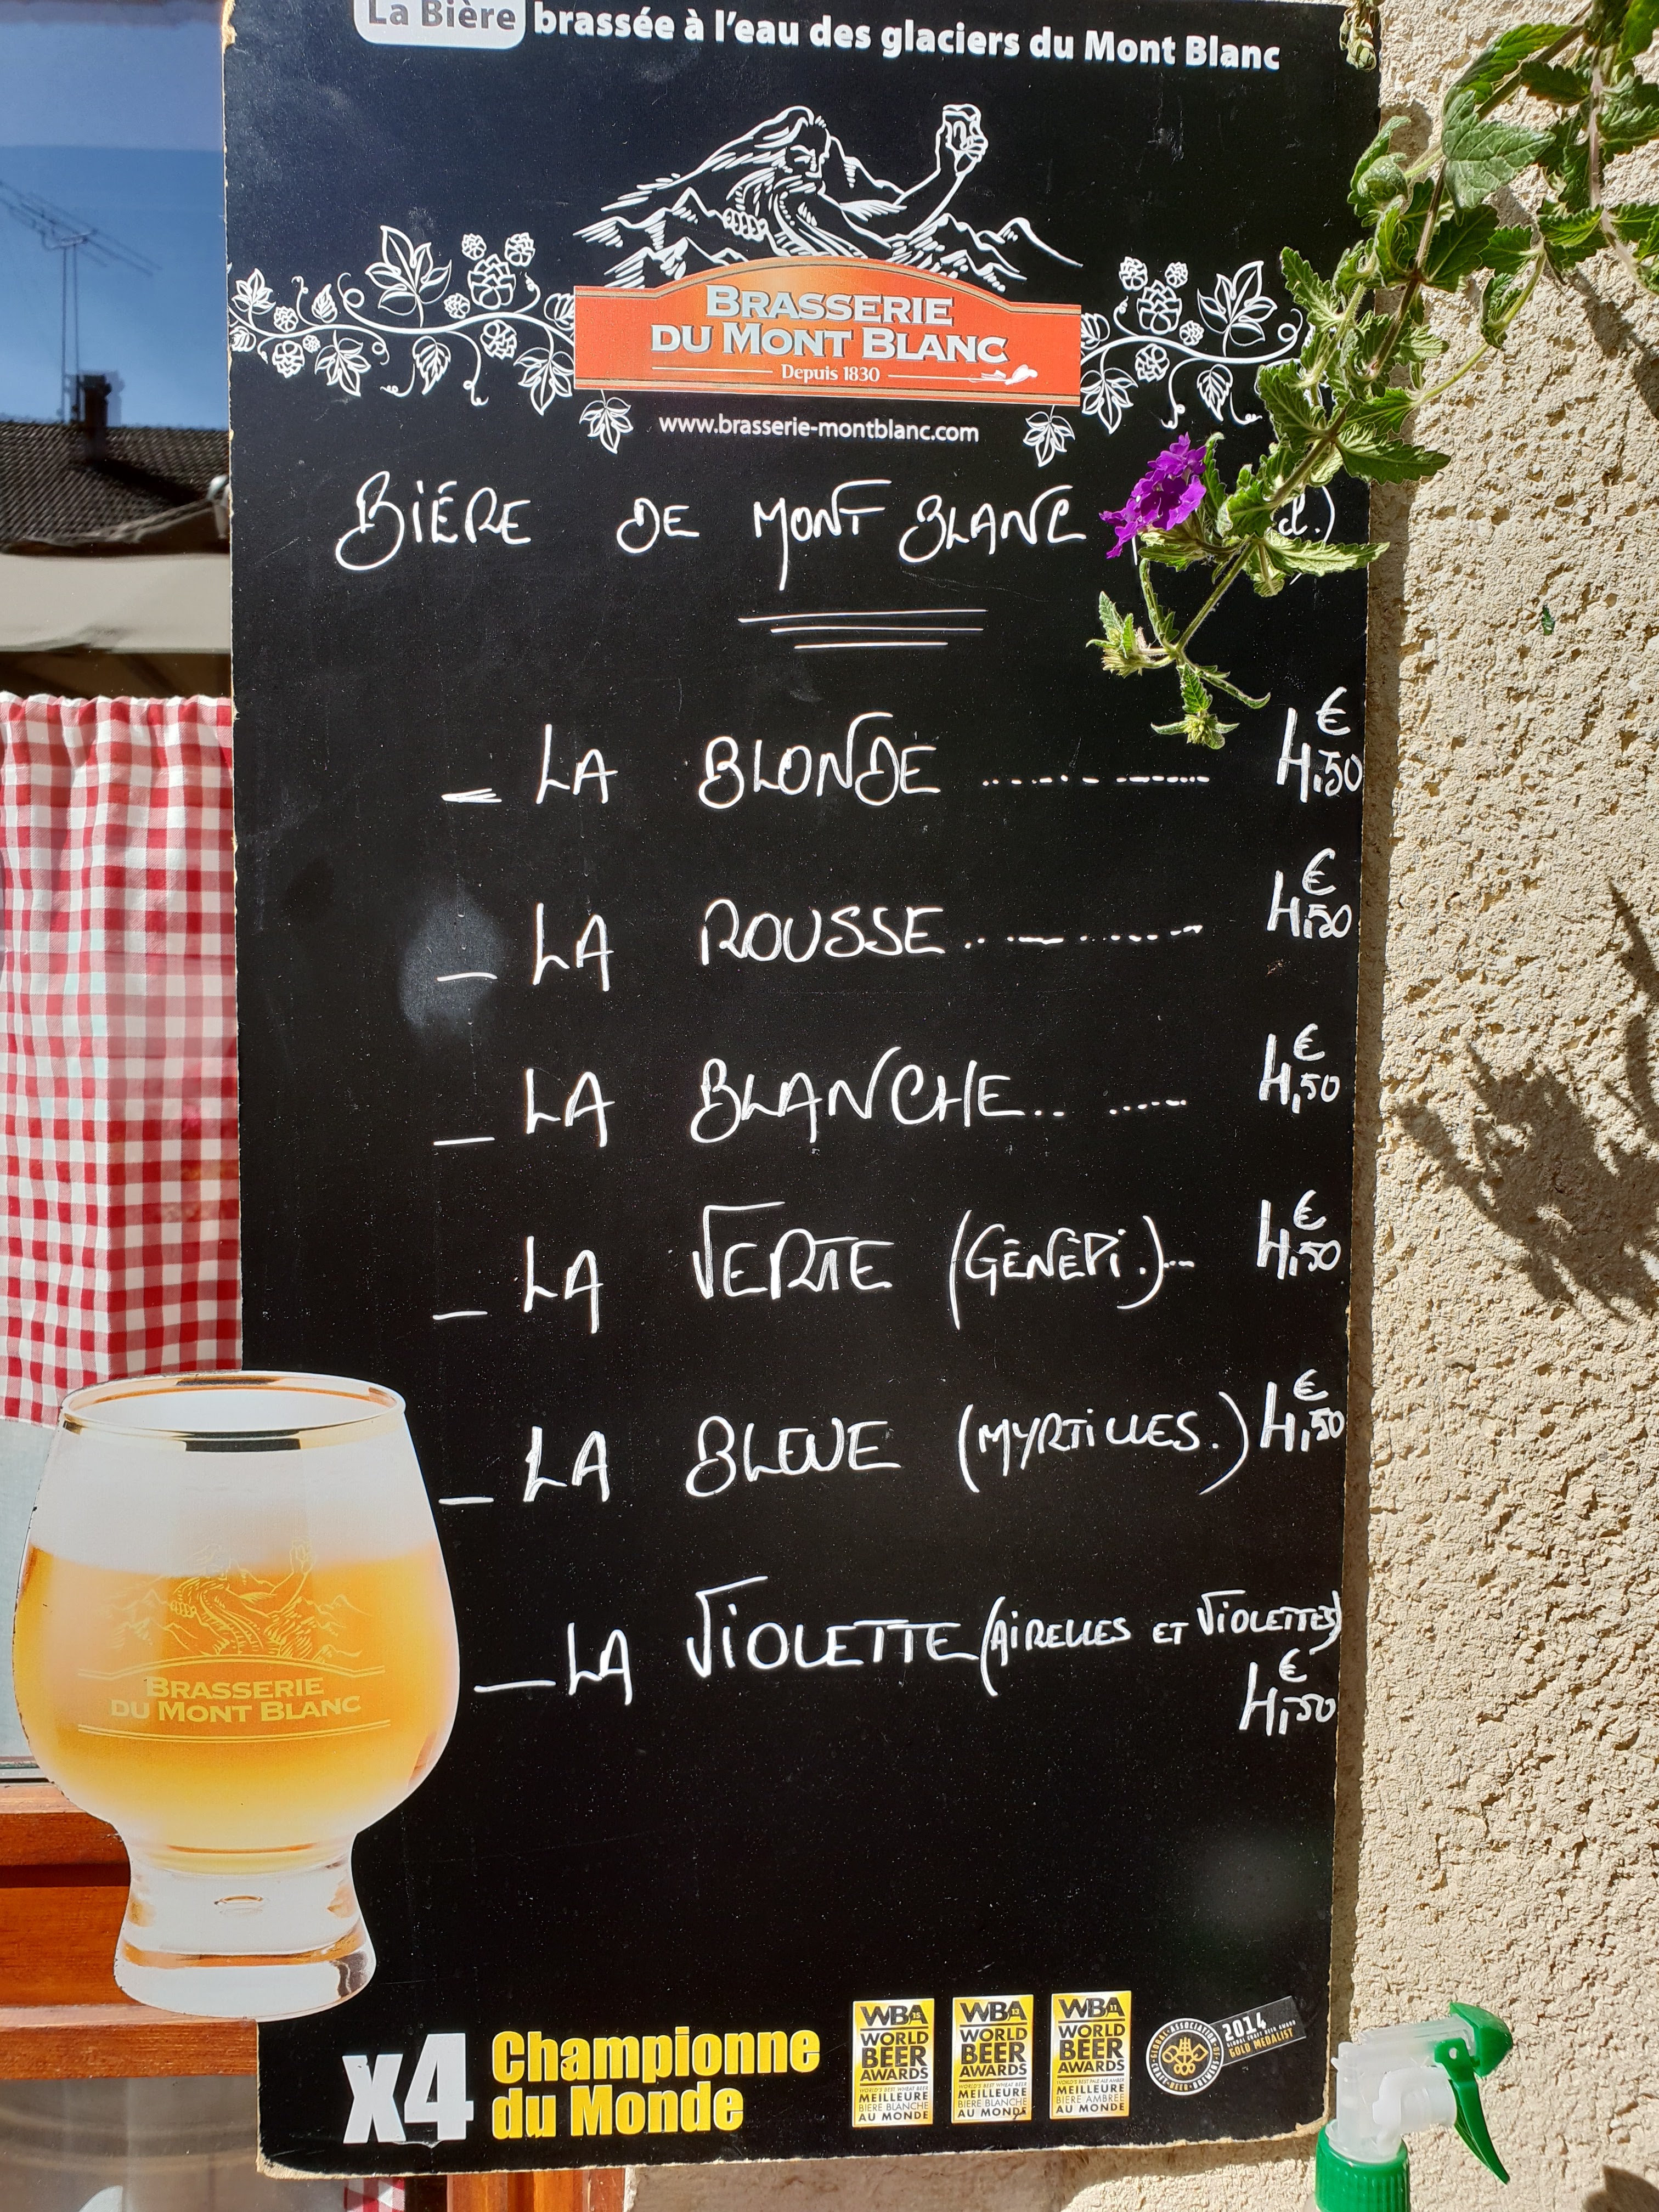 La Bière brassée à l'eau des glaciers du Mont Blanc
BRASSERIE
DU MONT BLANC
Depuis 1830
www.brasserie-montblanc.com
BIÉRE DE MONT BLANC cl.)
_ LA BLONDE ............ 4,50 €
_ LA ROUSSE ............ 4,50 €
_ LA BLANCHE.. ...... 4,50 €
_ LA VERTE (GÉNÉPI.)... 4,50 €
_ LA BLEUE (MYRTILLES.) 4,50 €
_ LA VIOLETTE (AIRELLES ET VIOLETTES)
4,50 €
BRASSERIE
DU MONT BLANC
x4 Championne
du Monde
WBA
WORLD
BEER
AWARDS
WORLD'S BEST WHEAT BEER
MEILLEURE
BIÈRE BLANCHE
AU MONDE
WBA
WORLD
BEER
AWARDS
WORLD'S BEST WHEAT BEER
MEILLEURE
BIÈRE BLANCHE
AU MONDE
WBA
WORLD
BEER
AWARDS
MEILLEURE
BIÈRE AMBRÉE
AU MONDE
2014
GOLD MEDALIST